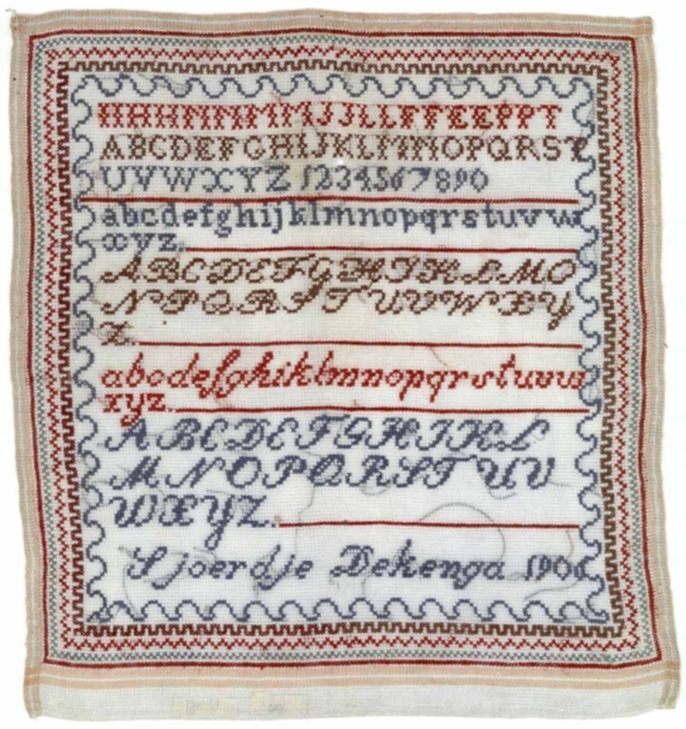 HHHNNNMMJJLLFFEEPPT
ABCDEFGHIJKLMNOPQRST
UVWXYZ 1234567890
abcdefghijklmnopqrstuvw
xyz.
ABCDEFGHIKLMO
NPQRSTUVWXY
Z.
abcdefghiklmnopqrstuvw
xyz.
ABCDEFGHIKL
MNOPQRSTUV
WXYZ.
Sjoerdje Dekenga 1906